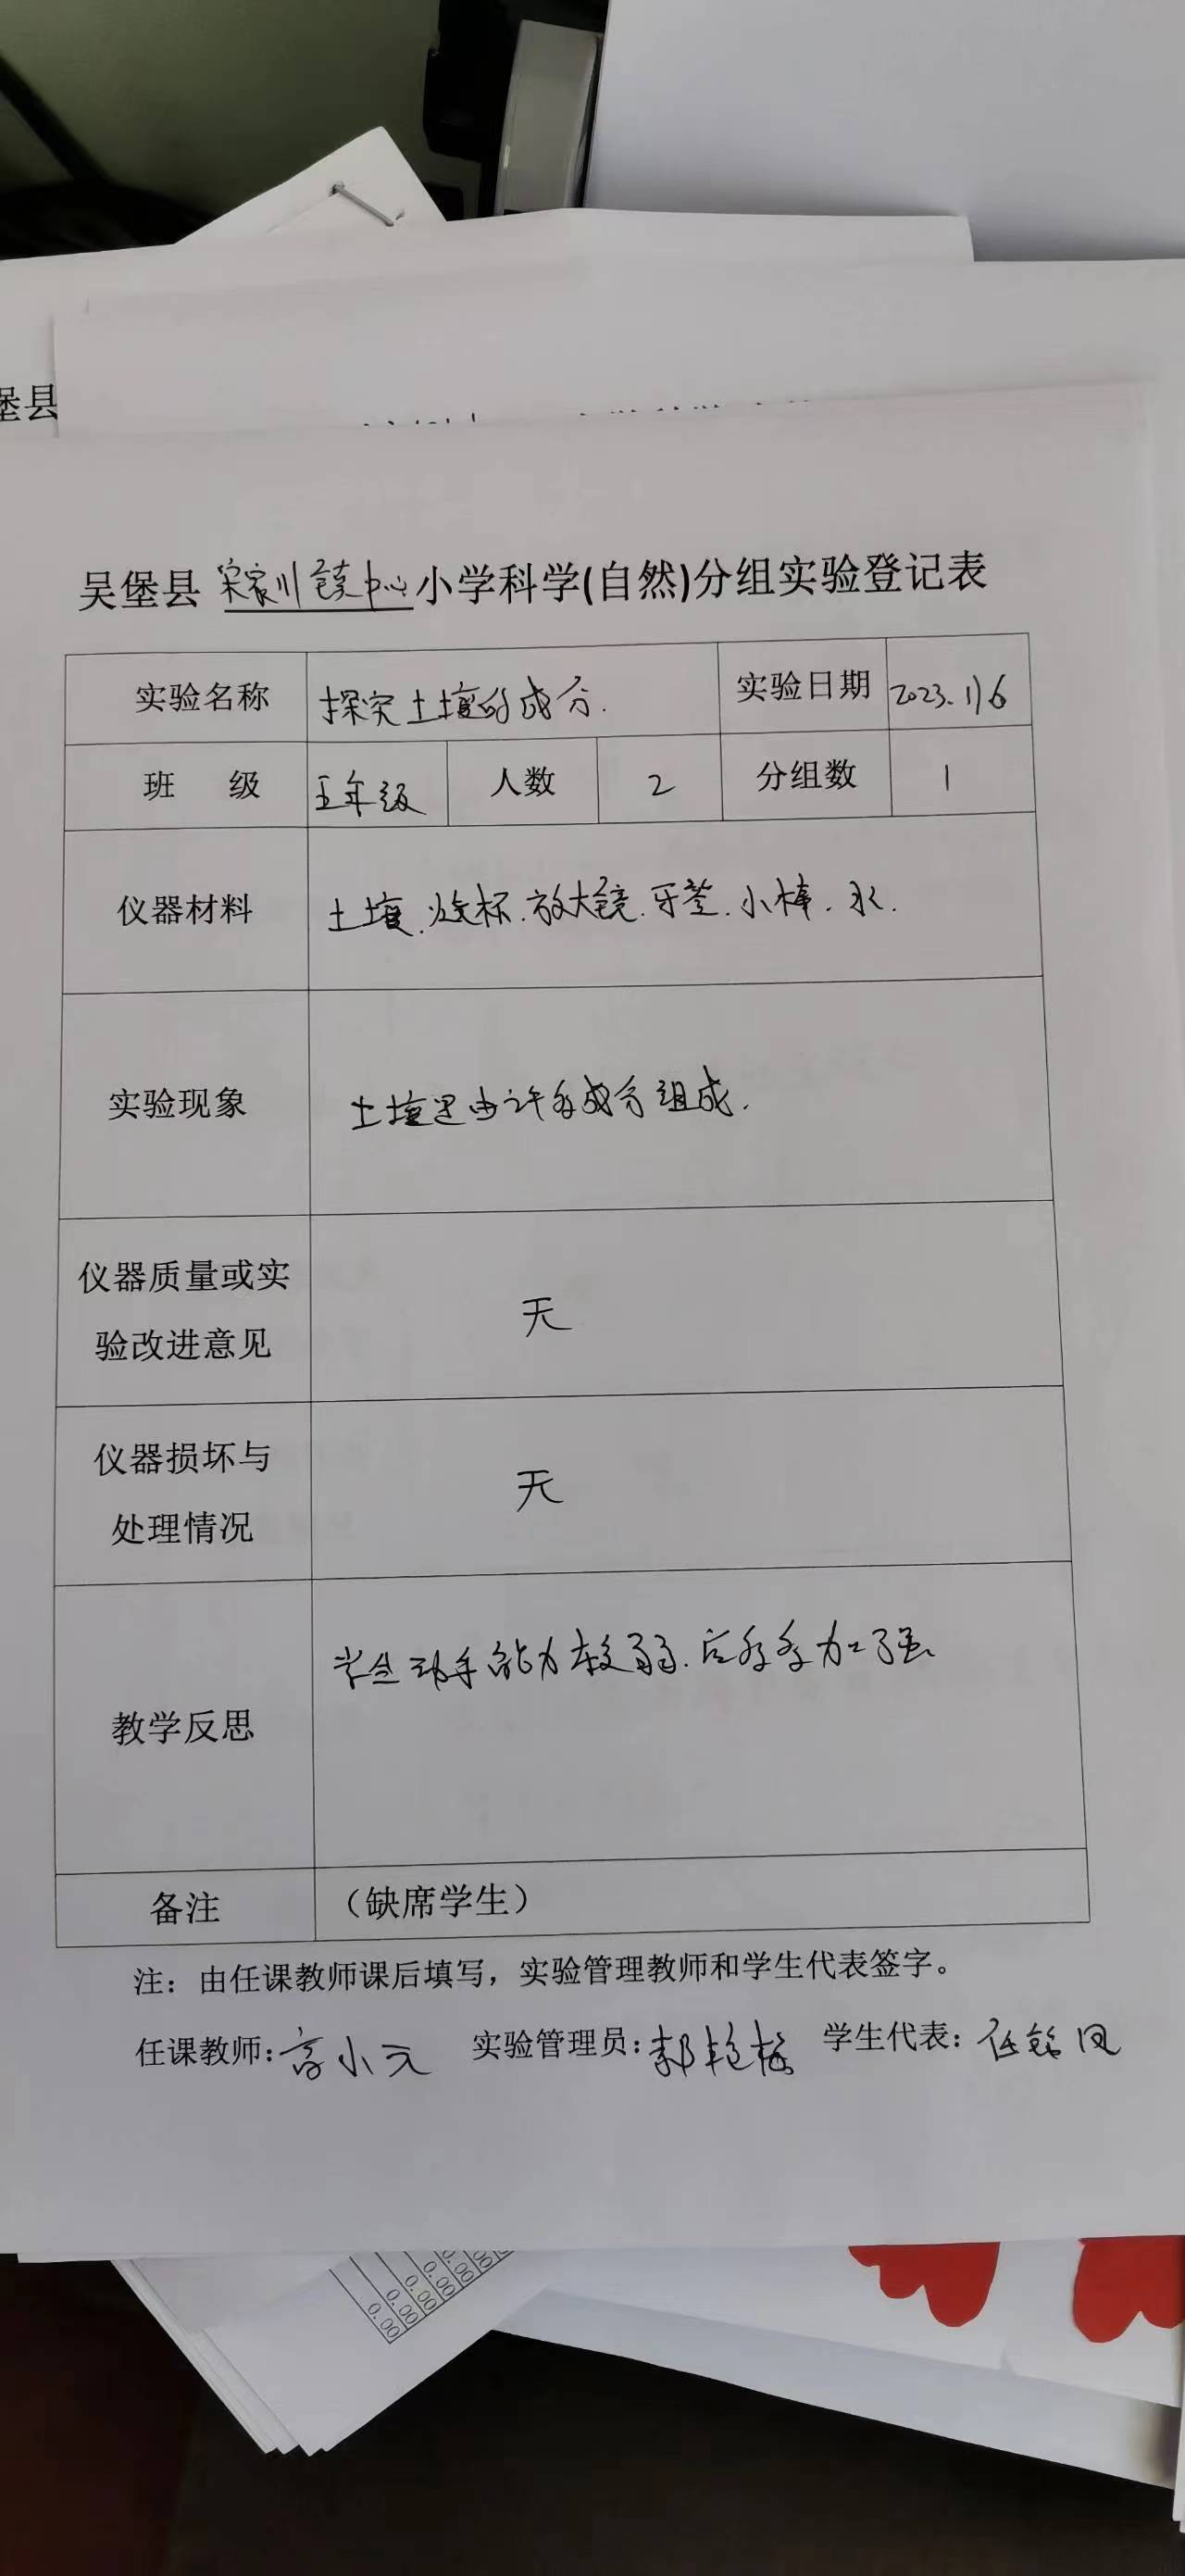 堡县
吴堡县 宋家川镇中心小学科学(自然)分组实验登记表
实验名称 探究土壤的成分. 实验日期 2023.11.6
班 级 五年级 人数 2 分组数 1
仪器材料 土壤.烧杯.放大镜.牙签.小棒.水.
实验现象 土壤是由许多成分组成.
仪器质量或实
验改进意见 无
仪器损坏与
处理情况 无
教学反思 学生动手能力较弱.应多多加强
备注 （缺席学生）
注：由任课教师课后填写，实验管理教师和学生代表签字。
任课教师: 高小元 实验管理员: 郭艳梅 学生代表: 任
0.00
0.00
0.00
0.00